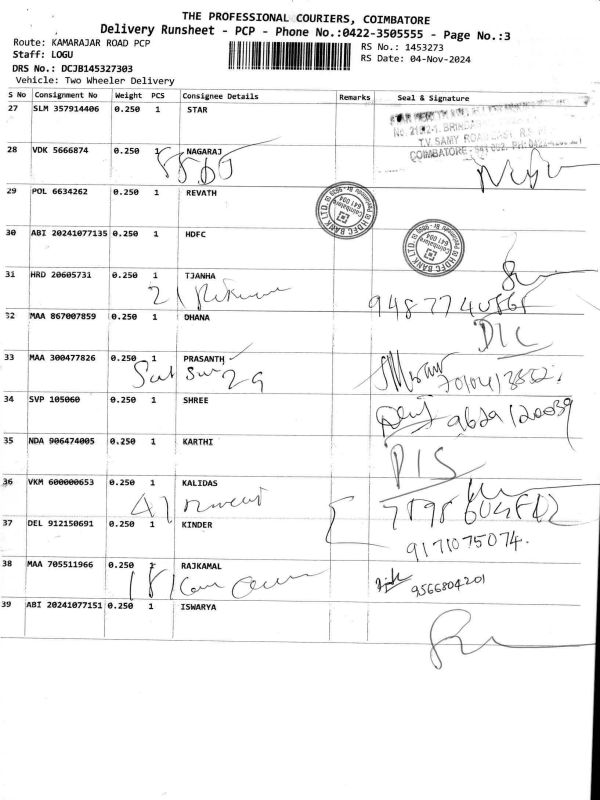 THE PROFESSIONAL COURIERS, COIMBATORE
Delivery Runsheet - PCP - Phone No.:0422-3505555 - Page No.:3
Route: KAMARAJAR ROAD PCP
RS No.: 1453273
Staff: LOGU
RS Date: 04-Nov-2024
DRS No.: DCJB145327303
Vehicle: Two Wheeler Delivery
S No Consignment No Weight PCS Consignee Details Remarks Seal & Signature
27 SLM 357914406 0.250 1 STAR
T.V. SAMY ROAD
COIMBATORE
28 VDK 5666874 0.250 1 NAGARAJ
29 POL 6634262 0.250 1 REVATH
HDFC BANK LTD.
Coimbatore
641 004
30 ABI 20241077135 0.250 1 HDFC
HDFC BANK LTD.
Coimbatore
641 004
31 HRD 20605731 0.250 1 TJANHA
21
32 MAA 867007859 0.250 1 DHANA
33 MAA 300477826 0.250 1 PRASANTH
29
34 SVP 105060 0.250 1 SHREE
35 NDA 906474005 0.250 1 KARTHI
36 VKM 600000653 0.250 1 KALIDAS
37 DEL 912150691 0.250 1 KINDER
9171075074.
38 MAA 705511966 0.250 1 RAJKAMAL
9566804201
39 ABI 20241077151 0.250 1 ISWARYA